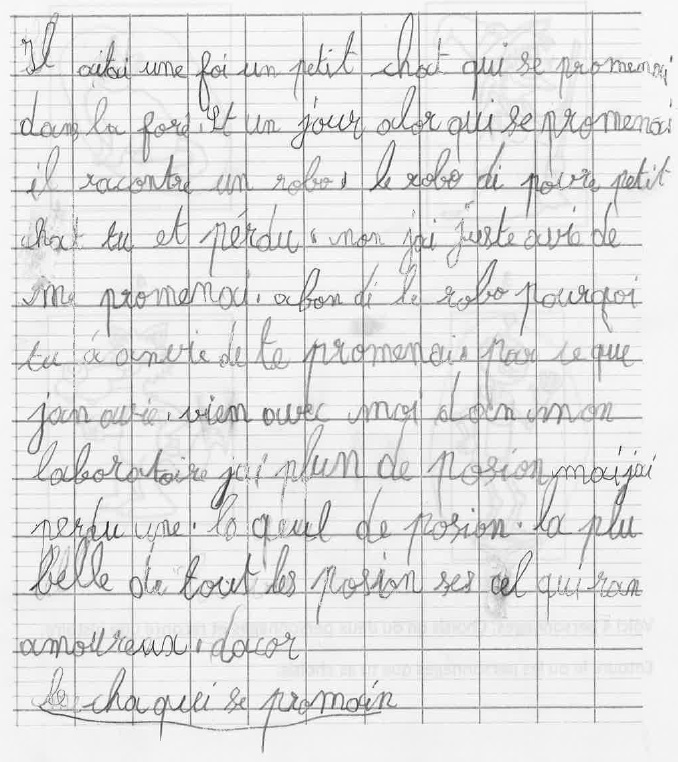 Il aitai une foi un petit chat qui se promenai
dans la foré. Et un jour alor qui se promenai
il racontre un robo, le robo di povre petit
chat tu et pérdu, non jai juste avie de
me promenai. abon di le robo pourqoi
tu à anvie de te promenai, par ce que
jan avie. vien avec moi dan mon
laboratoire jai plun de posion, mai jai
perdu une. la qeul de posion. la plu
belle de tout les posion ses cel qui ran
amoureux. dacor
le cha qui se promain